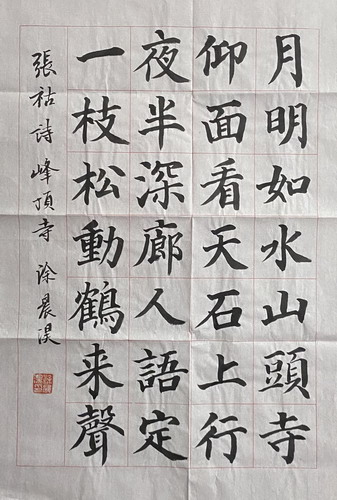 月明如水山頭寺
仰面看天石上行
夜半深廊人語定
一枝松動鶴来聲
張祜詩峰頂寺涂晨淏